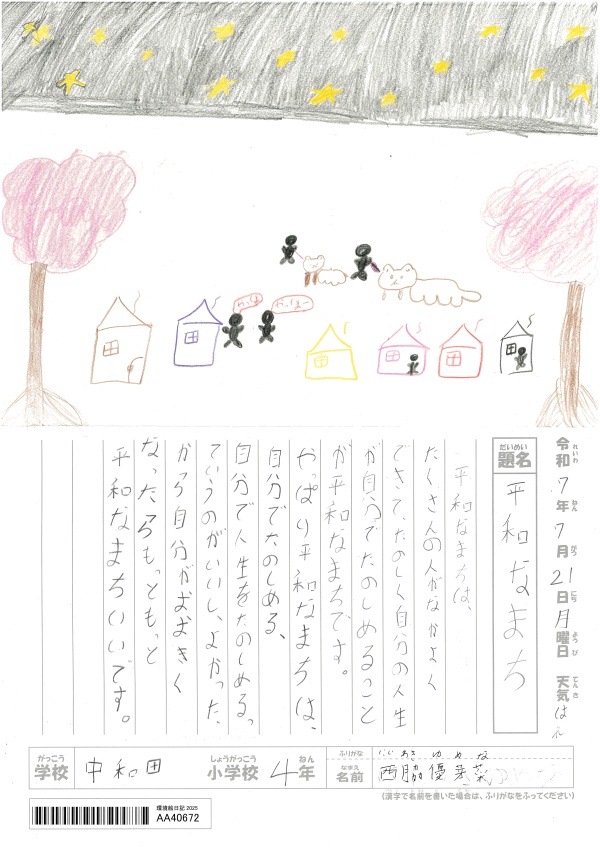 やっほー
やっほー
令和7年7月21日月曜日 天気 はれ
れいわ ねん がつ にち ようび てんき
だいめい
題名
平和なまち
平和なまちは、
たくさんの人がなかよく
できて、たのしく自分の人生
が自分でたのしめること
が平和なまちです。
やっぱり平和なまちは、
自分でたのしめる、
自分で人生をたのしめる。
っていうのがいいし、よかった、
から自分がおおきく
なったらもっともっと
平和なまちいいです。
がっこう しょうがっこう ねん ふりがな
学校 中和田 小学校 4年
なまえ
名前 西脇優芽菜
(漢字で名前を書いた場合は、ふりがなをふってください)
環境絵日記 2025
AA40672